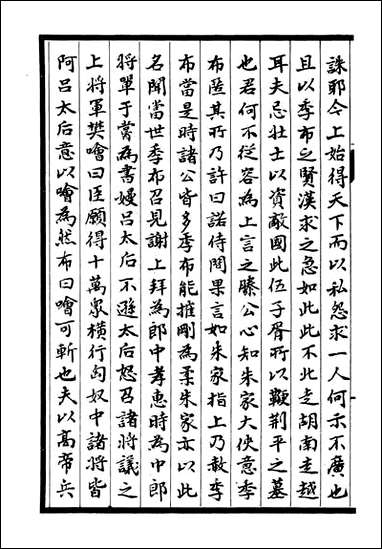 誅耶今上始得天下而以私怨求一人何示不廣也
且以季布之賢漢求之急如此此不北走胡南走越
耳夫忌壯士以資敵國此伍子胥所以鞭荊平之墓
也君何不從容為上言之滕公心知朱家大俠意季
布匿其所乃許曰諾侍間果言如朱家指上乃赦季
布當是時諸公皆多季布能摧剛為柔朱家亦以此
名聞當世季布召見謝上拜為郎中孝惠時為中郎
將單于嘗為書嫚呂太后不遜太后怒召諸將議之
上將軍樊噲曰臣願得十萬眾橫行匈奴中諸將皆
阿呂太后意以噲為然布曰噲可斬也夫以高帝兵